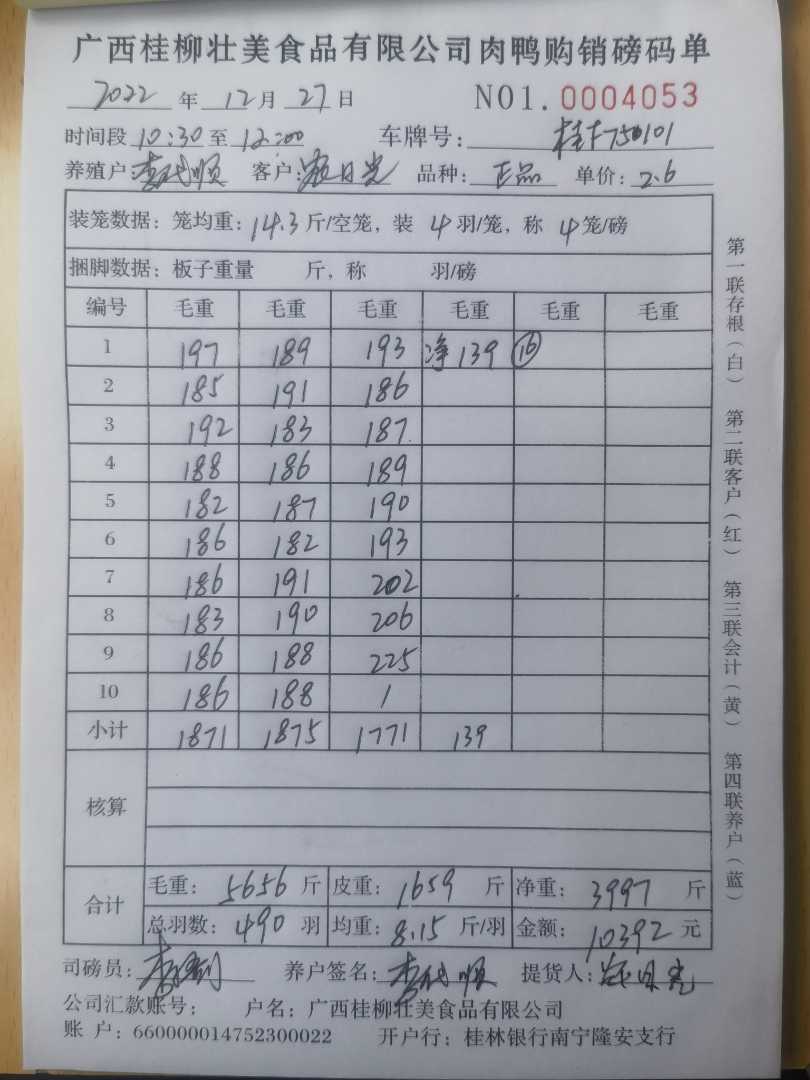 广西桂柳壮美食品有限公司肉鸭购销磅码单
2022 年 12 月 27 日 NO1. 0004053
时间段 10:30 至 12:00 车牌号:
养殖户: 客户: 品种: 正品 单价: 2.6
装笼数据: 笼均重: 14.3 斤/空笼, 装 4 羽/笼, 称 4 笼/磅
捆脚数据: 板子重量 斤, 称 羽/磅
编号 毛重 毛重 毛重 毛重 毛重 毛重
1 197 189 193 净139 16
2 185 191 186
3 192 183 187
4 188 186 189
5 182 187 190
6 186 182 193
7 186 191 202
8 183 190 206
9 186 188 225
10 186 188 /
小计 1871 1875 1771 139
核算
合计 毛重: 5656 斤 皮重: 1659 斤 净重: 3997 斤
总羽数: 490 羽 均重: 8.15 斤/羽 金额: 10392 元
司磅员: 养户签名: 提货人:
公司汇款账号: 户名: 广西桂柳壮美食品有限公司
账 户: 660000014752300022 开户行: 桂林银行南宁隆安支行
第一联存根(白) 第二联客户(红) 第三联会计(黄) 第四联养户(蓝)